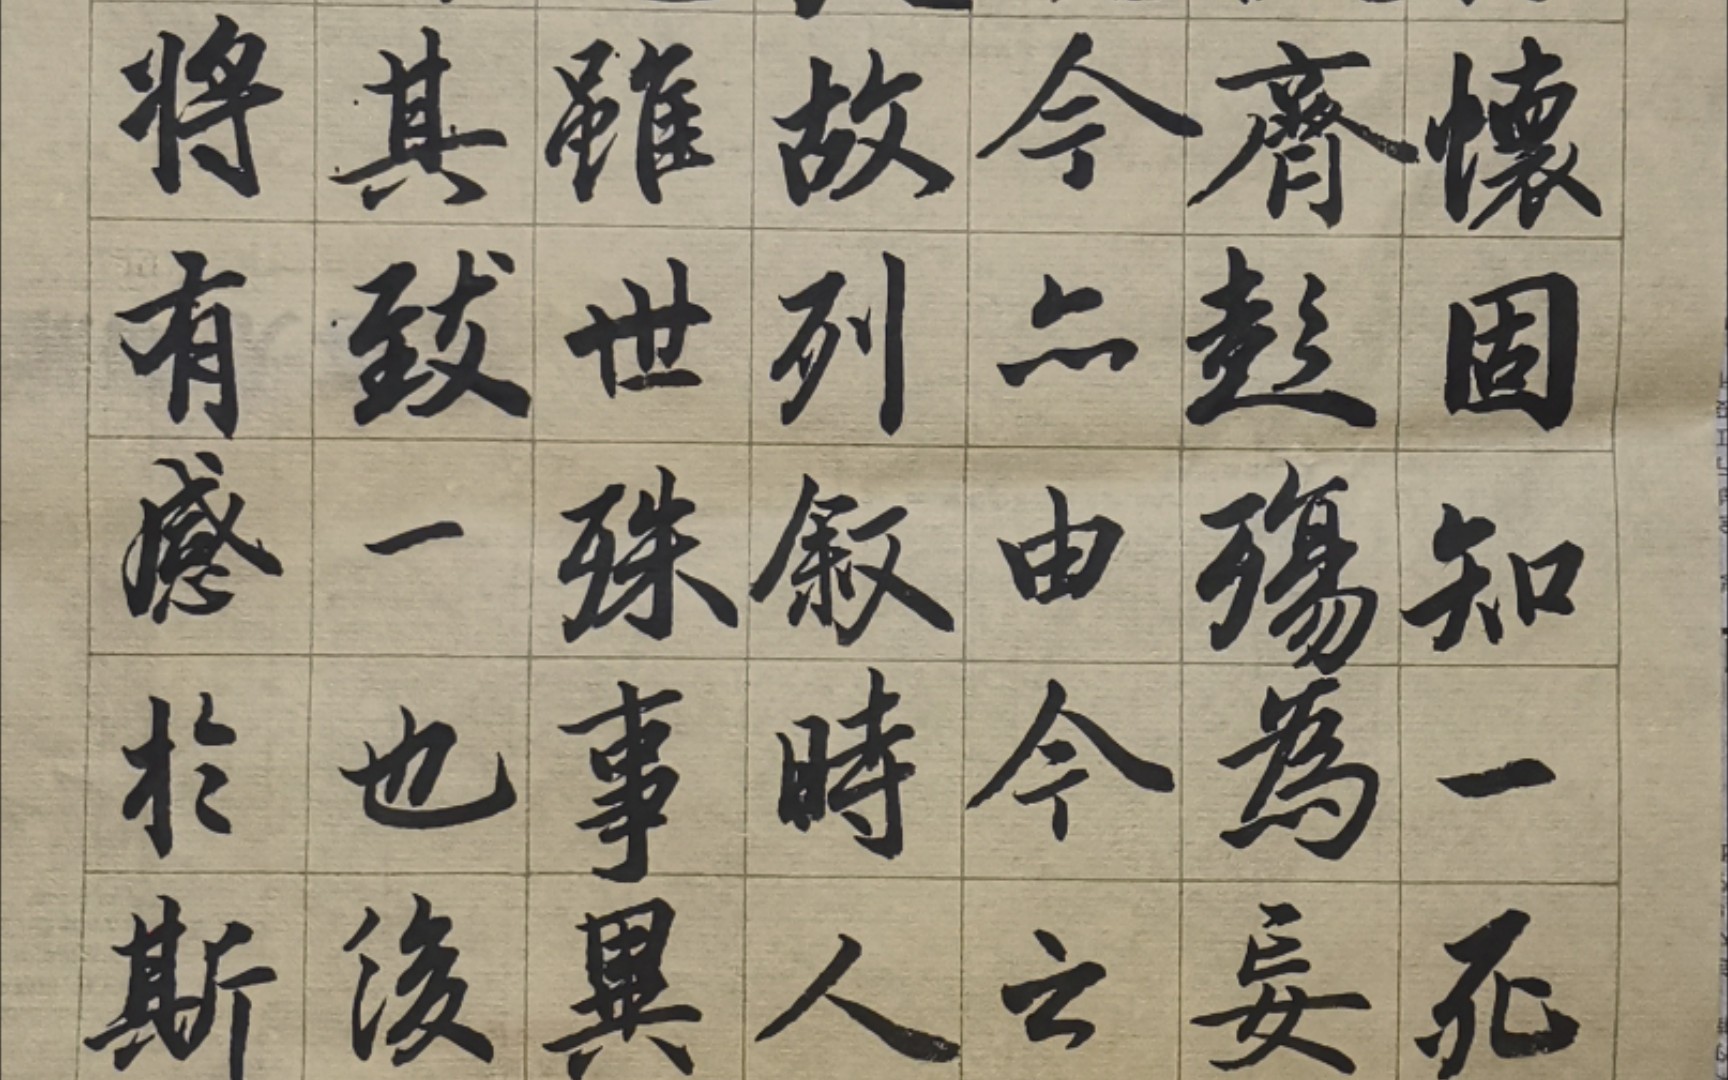 懷固知一死
齊彭殤為妄
今亦由今之
故列敘時人
雖世殊事異
其致一也後
將有感於斯